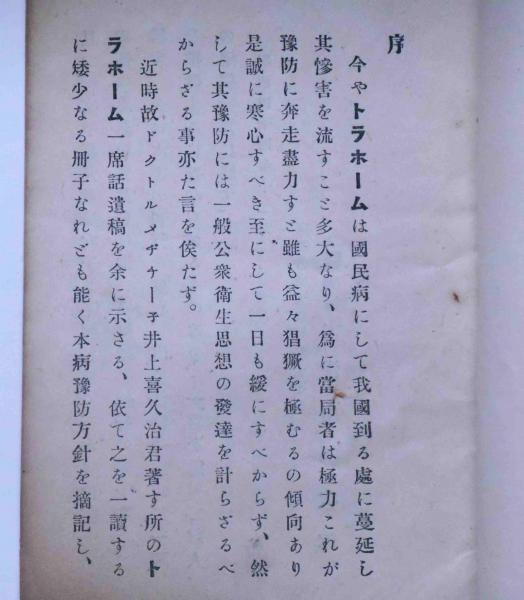 序
今やトラホームは國民病にして我國到る處に蔓延し
其慘害を流すこと多大なり、爲に當局者は極力これが
豫防に奔走盡力すと雖も益々猖獗を極むるの傾向あり
是誠に寒心すべき至にして一日も緩にすべからず、然
して其豫防には一般公衆衛生思想の發達を計らざるべ
からざる事亦た言を俟たず。
近時故ドクトルメヂチー子井上喜久治君著す所のト
ラホーム一席話遺稿を余に示さる、依て之を一讀する
に矮少なる冊子なれども能く本病豫防方針を摘記し、